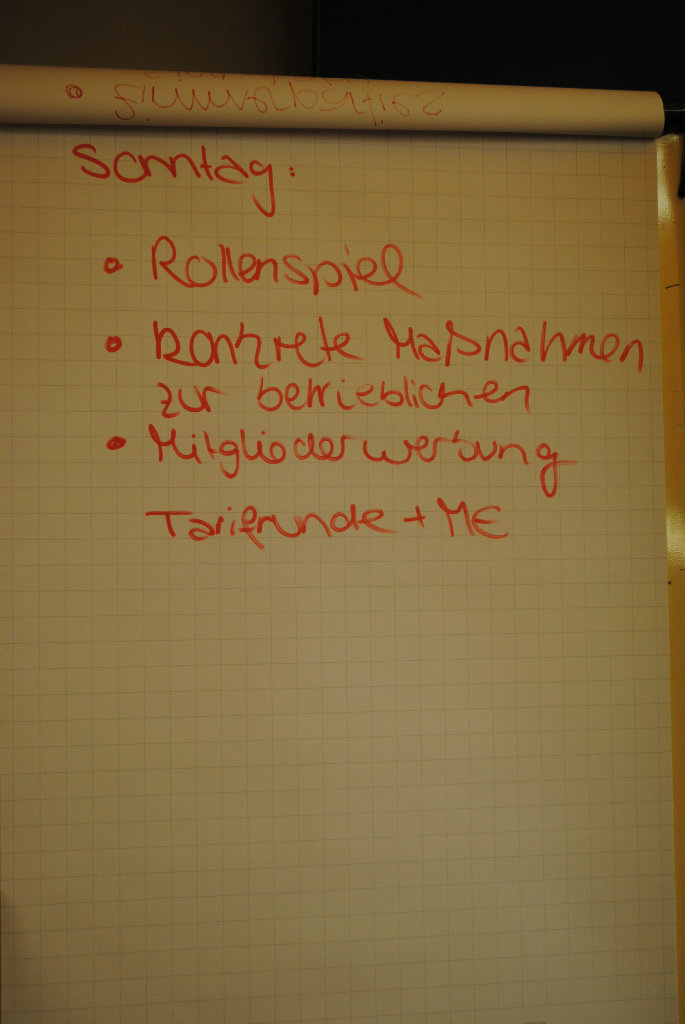 Sonntag:
• Rollenspiel
• konkrete Maßnahmen
zur betrieblichen
• Mitgliederwerbung
Tarifrunde + ME